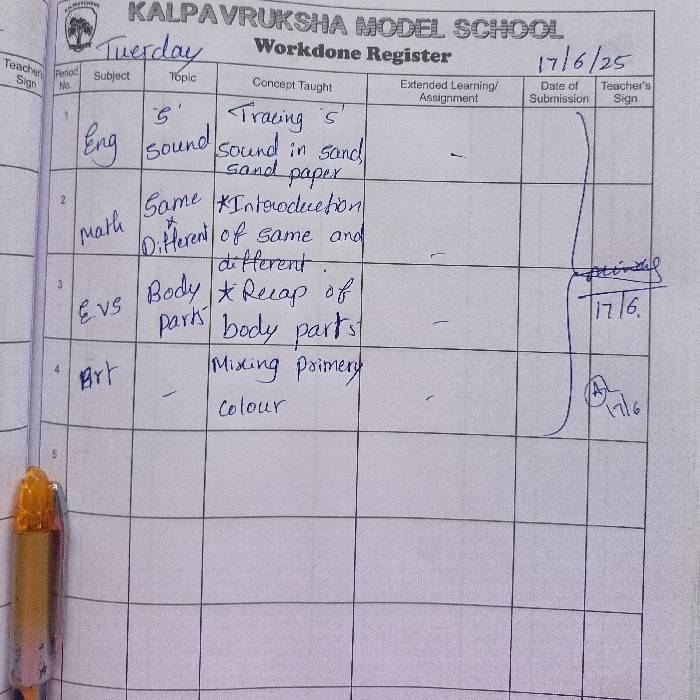 KALPAVRUKSHA MODEL SCHOOL
Tuerday Workdone Register 17/6/25
Teacher's Sign
Period No. Subject Topic Concept Taught Extended Learning/ Assignment Date of Submission Teacher's Sign
1 Eng 's' sound Tracing 's'
sound in sand,
sand paper -
2 Math Same & Different *Introduction
of same and
different. -
3 E.VS Body parts * Recap of
body parts -
17/6.
4 Art - Mixing primery
colour -
17/6
5